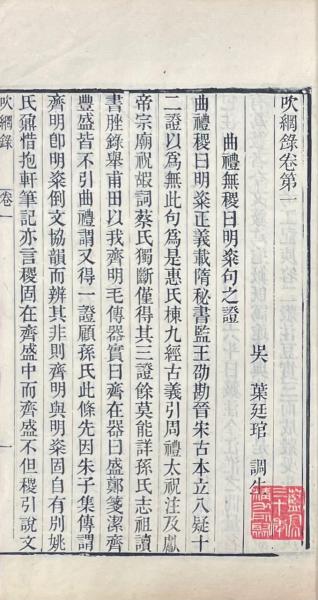 吹網錄卷第一
吳 葉廷琯 調生
曲禮無稷曰明粢句之證
曲禮稷曰明粢正義載隋秘書監王劭勘晉宋古本立八疑十
二證以為無此句為是惠氏棟九經古義引周禮太祝注及獻
帝宗廟祝嘏詞蔡氏獨斷僅得其三證餘莫能詳孫氏志祖讀
書脞錄舉甫田以我齊明毛傳器實曰齊在器曰盛鄭箋潔齊
豐盛皆不引曲禮謂又得一證顧孫氏此條先因朱子集傳謂
齊明即明粢倒文協韻而辨其非則齊明與明粢固自有別姚
氏鼐惜抱軒筆記亦言稷固在齊盛中而齊盛不但稷引說文
吹網錄 卷一 一